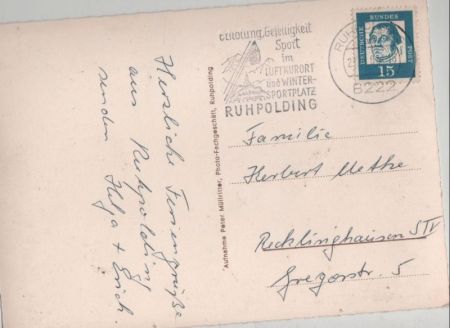 Herzliche Feriengrüße
aus Ruhpolding
senden Helga + Erich.
Aufnahme Peter Müllritter, Photo-Fachgeschäft, Ruhpolding
Erholung, Geselligkeit
Sport
im
LUFTKURORT
und WINTER-
SPORTPLATZ
RUHPOLDING
8222
DEUTSCHE BUNDESPOST
15
Familie
Herbert Methe
Recklinghausen
Gregorstr. 5